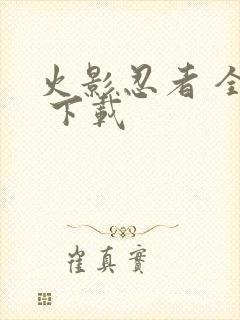 火影忍者 全
下載
崔真實